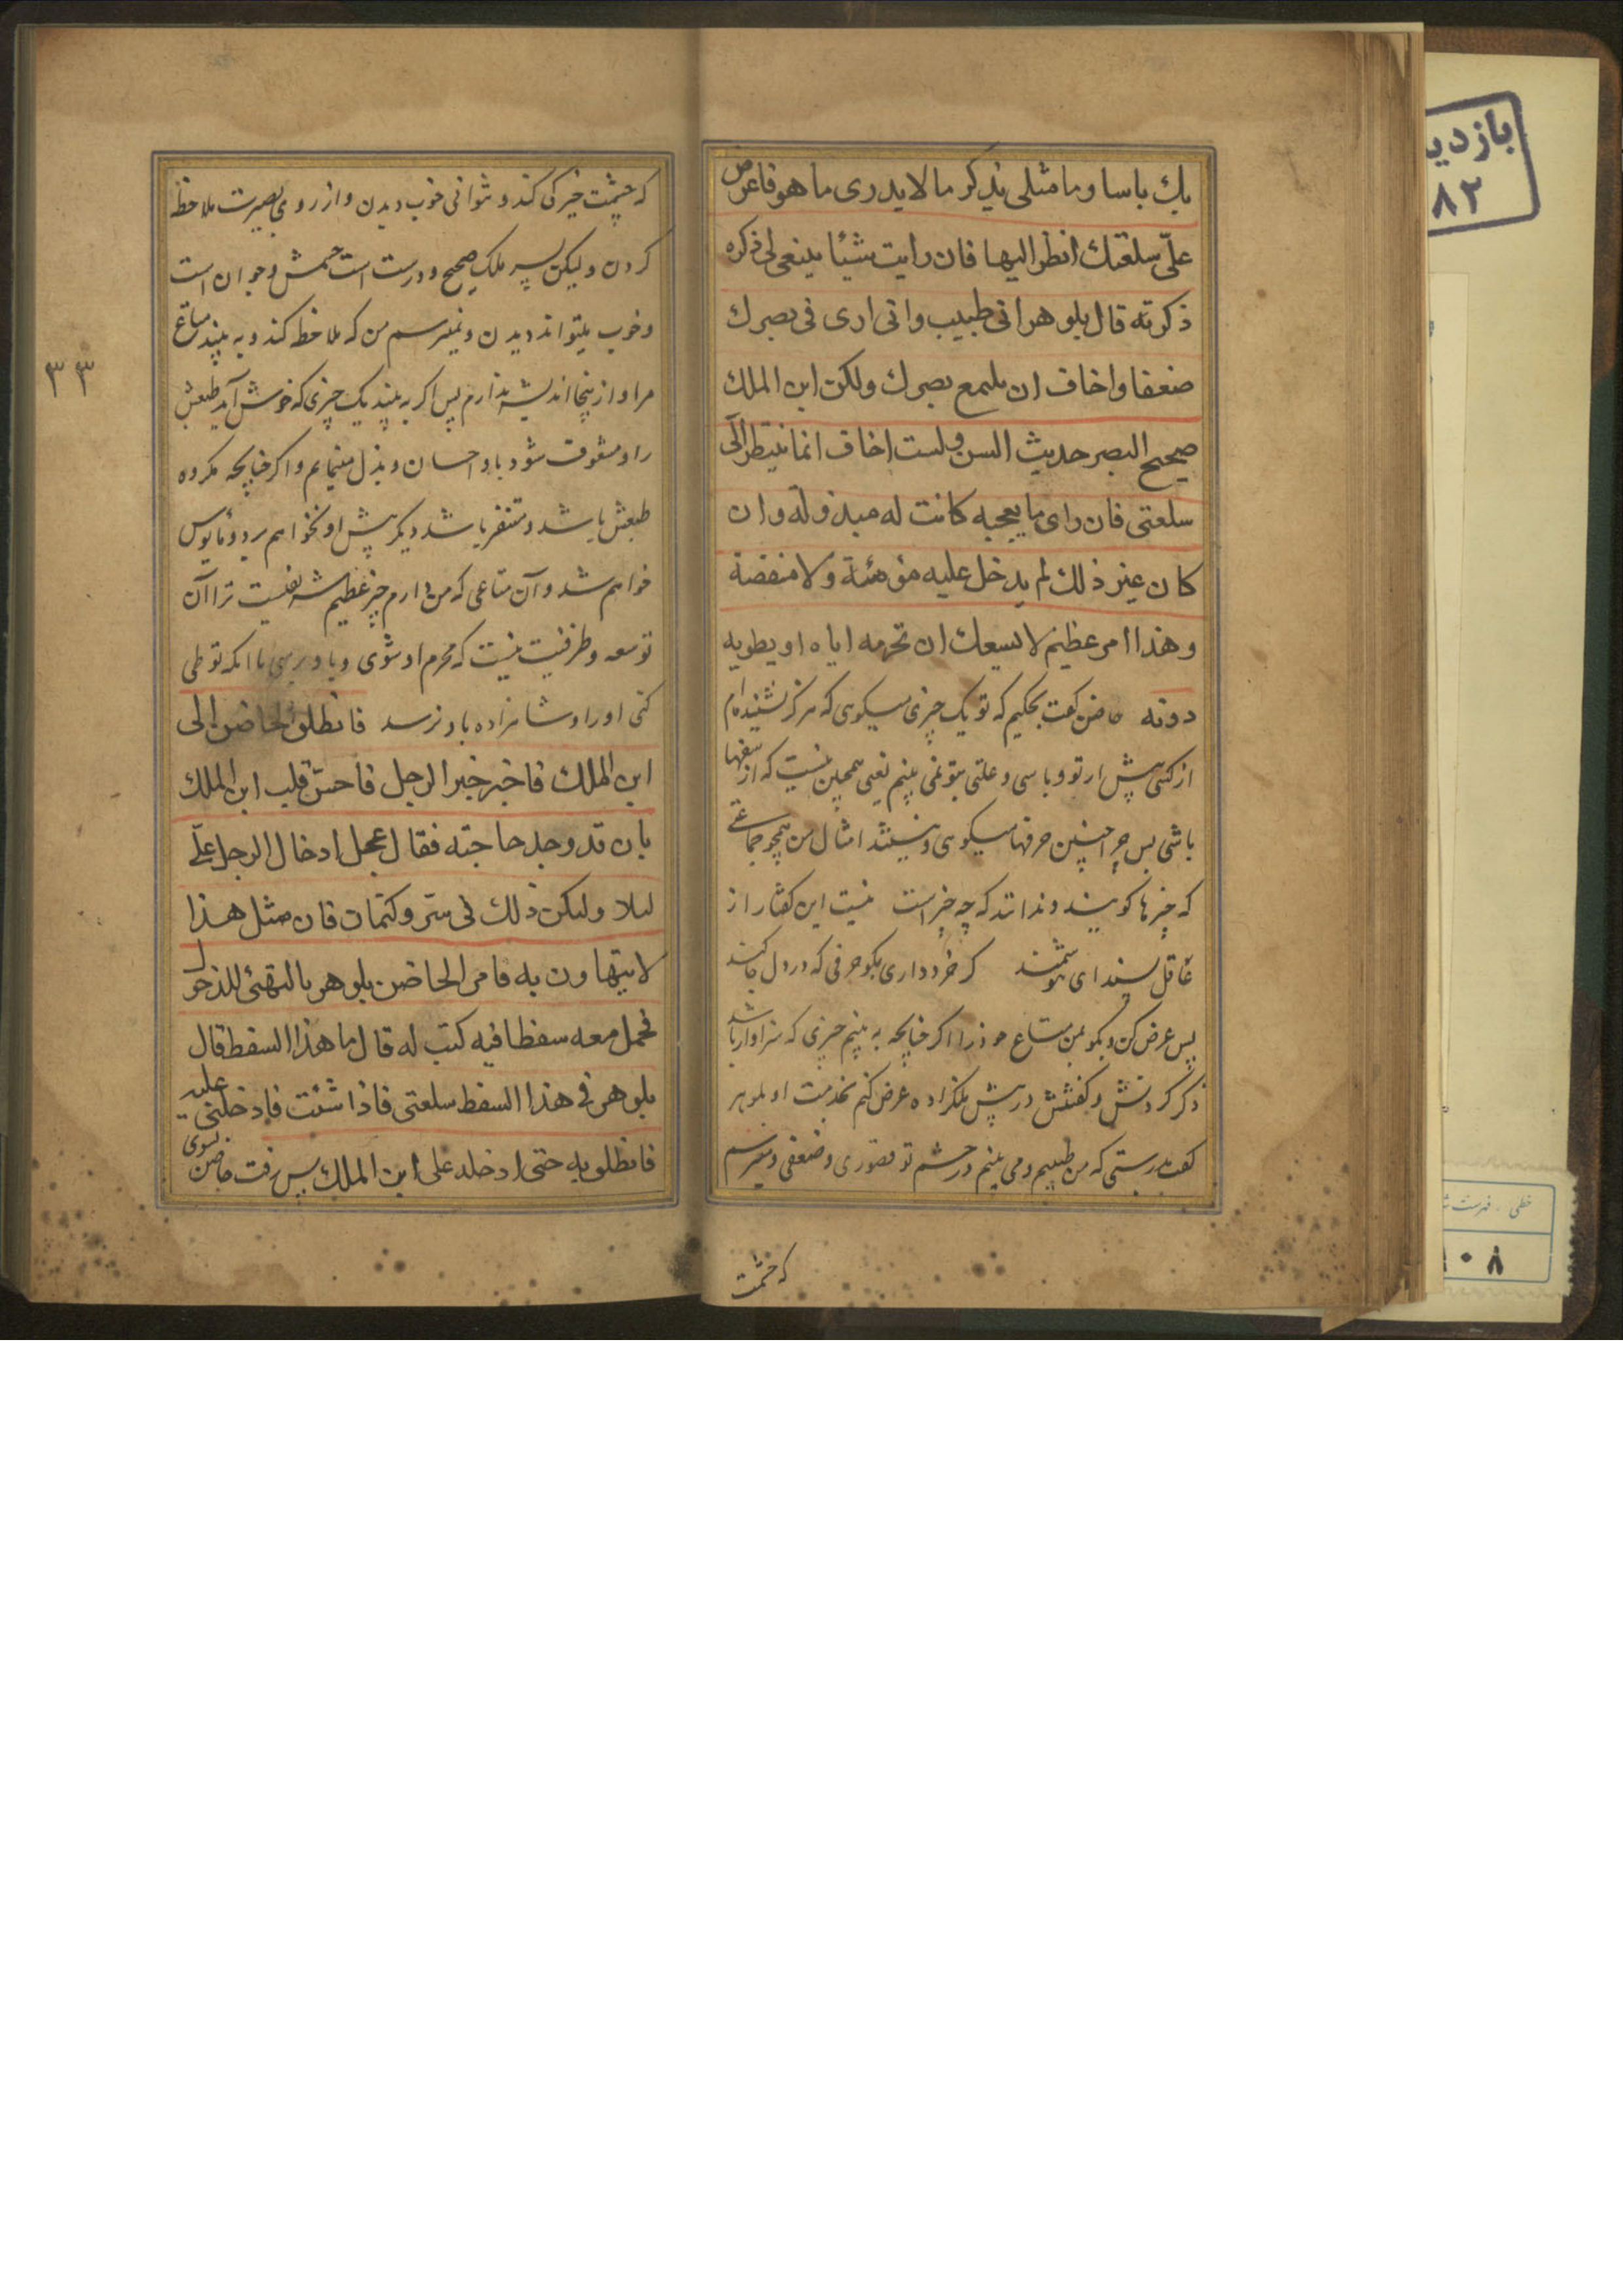 بك باسا وما مثلى يذكر ما لا يدرى ما هو فاعرض
علىّ سلعتك انظر اليها فان رايت شيئا ينبغى لى ذكره
ذكرته قال بلوهر انى طبيب وانى ارى فى بصرك
ضعفا واخاف ان يلتمع بصرك ولكن ابن الملك
صحيح البصر حديث السن ولست اخاف انما ينتظر الى
سلعتى فان راى ما يعجبه كانت له مبذولة وان
كان غير ذلك لم يدخل عليه مؤمئة ولا منقصة
وهذا امر عظيم لا يسعك ان تحرمه اياه او يطويه
دونه حاضن كفت بحكيم كه تو يک چيزى ميكوى كه هركز نشنيده ام
از كسى پيش از تو و باسى و علتى بتو نمى بينم يعنى همچنين نيست كه از سفها
باشى پس چرا چنين حرفها ميكوى و نيستند امثال من همچو جماعتى
كه چيزها كويند و ندانند كه چه چيز است نيست اين كفتار از
عاقل پسند اى هوشمند كر خرد دارى بكو حرفى كه در دل جا كند
پس عرض كن و بكو بمن متاع خود را اكر چنانچه به بينم چيزى كه سزاوار باشد
ذكر كردنش و كفتنش در پيش ملكزاده عرض كنم بخدمت او بلوهر
كفت بدرستى كه من طبيبم و مى بينم در چشم تو قصورى و ضعفى و ميترسم
كه چشمت
كه چشمت خيركى كند و نتوانى خوب ديدن و از روى بصيرت ملاحظه
كردن و ليكن پسر ملک صحيح و درست است چشمش و جوان است
و خوب ميتواند ديدن و نميترسم من كه ملاحظه كند و به بيند متاع
مرا و از اينجا انديشه ندارم پس اكر به بيند يک چيزى كه خوش آمد طبعش
را و مشعوف شود باو احسان و بذل مينمايم و اكر چنانچه مكروه
طبعش باشد و متنفر باشد ديكر پيش او نخواهم برد و مأيوس
خواهم شد و آن متاعى كه من دارم چيز عظيم شريفيست ترا آن
توسعه و ظرفيت نيست كه محرم او شوى و باو برسى با آنكه تو طى
كنى او را و شاهزاده باو نرسد فانطلق الحاضن الى
ابن الملك فاخبر خبر الرجل فاحس قلب ابن الملك
بان قد وجد حاجته فقال عجل ادخال الرجل علىّ
ليلا وليكن ذلك فى سرّ وكتمان فان مثل هذا
لا يتهاون به فامر الحاضن بلوهر بالتهيّئ للدخول
فحمل معه سفطا فيه كتب له قال ما هذا السفط قال
بلوهر فى هذا السفط سلعتى فاذا شئت فادخلنى عليه
فانطلق به حتى ادخله على ابن الملك پس رفت حاضن بسوى
٣٣
بازديد
٨٢
خطى . فهرست
٠٨